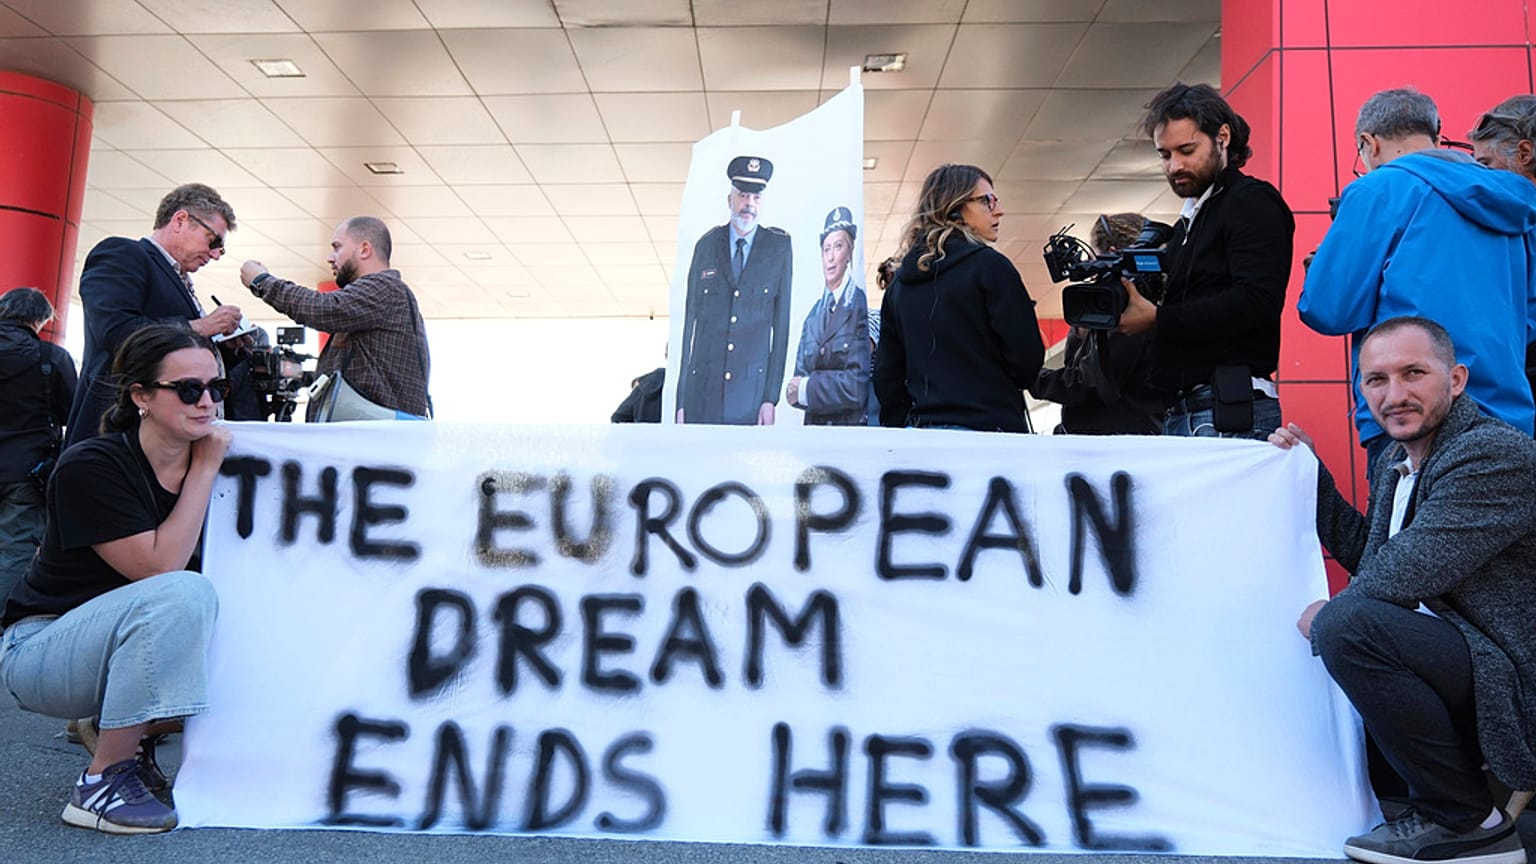 THE EUROPEAN
DREAM
ENDS HERE